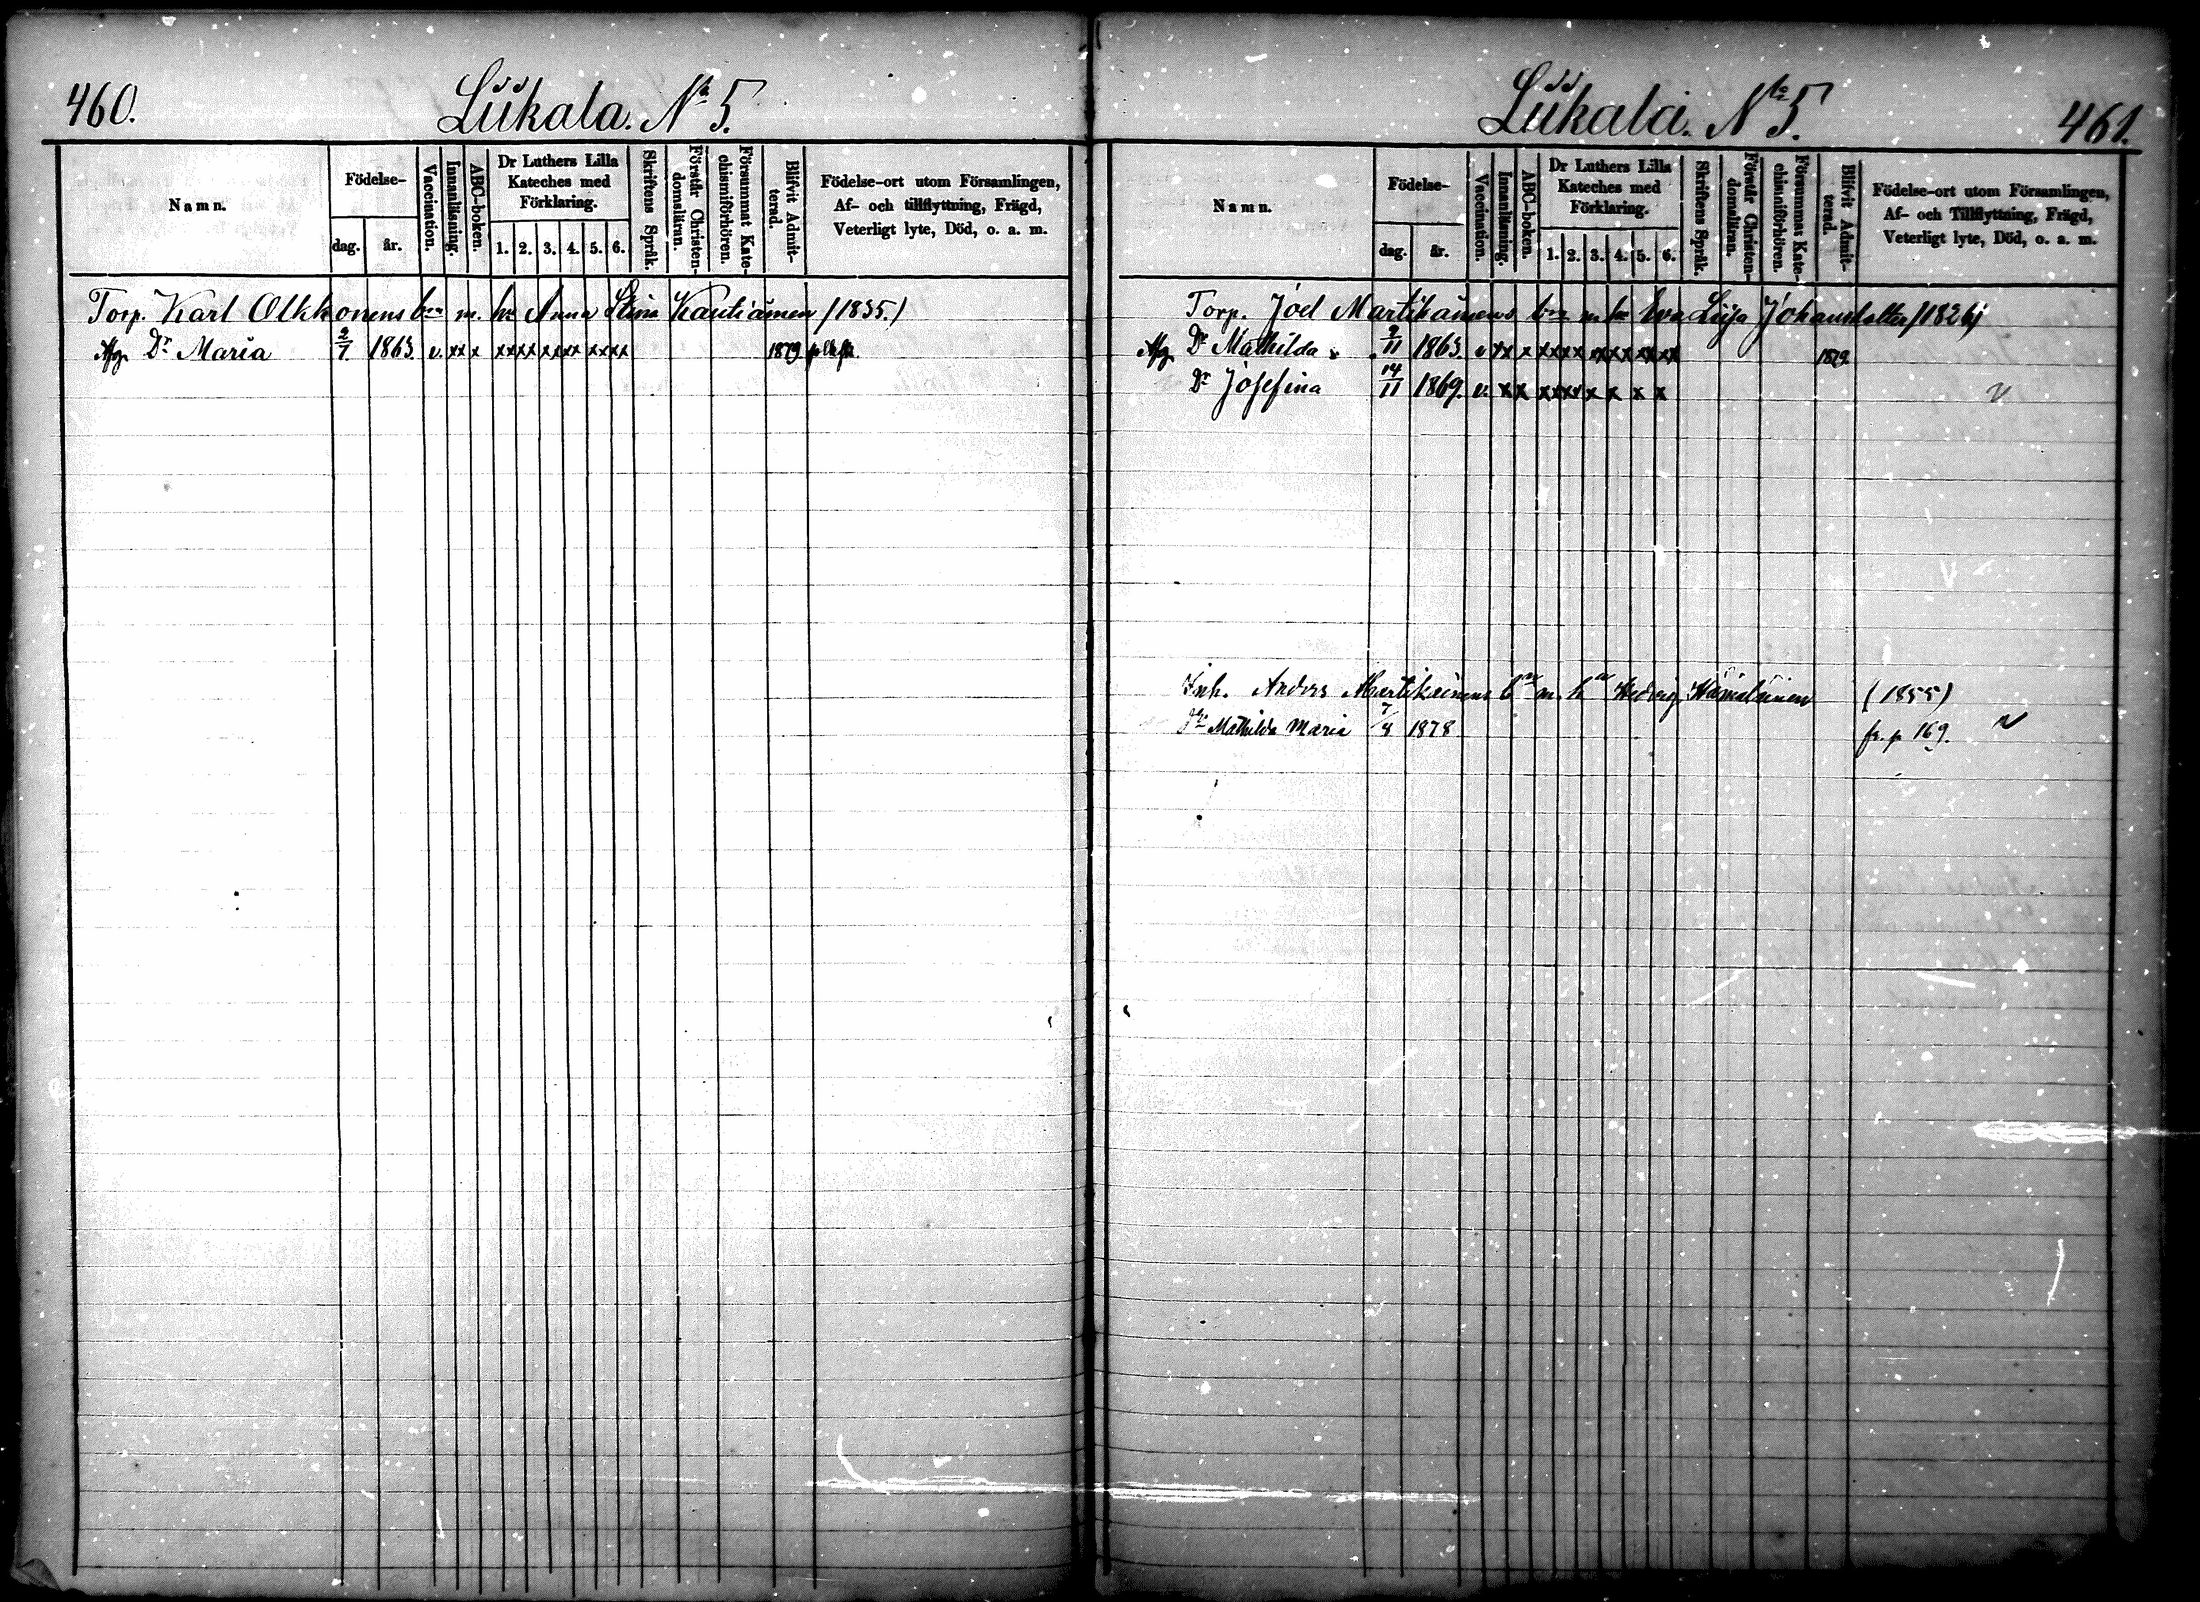 460. Liikala. No 5.
Namn.
Födelse-
dag.
år.
Vaccination.
Innanläsning.
ABC-boken.
Dr Luthers Lilla
Kateches med
Förklaring.
1. 2. 3. 4. 5. 6.
Skriftens Språk.
Förstår Christen-
domsläran.
Försummat Kate-
chismiförhören.
Blifvit Admit-
terad.
Födelse-ort utom Församlingen,
Af- och tillflyttning, Frägd,
Veterligt lyte, Död, o. a. m.
Torp. Karl Olkkonens bn m. hu Anna Stina Kautiainen (1835.)
Dr Maria 2/7 1863 v. xx x xxxx xxxx xxxx 1879
Liikala. No 5. 461.
Namn.
Födelse-
dag.
år.
Vaccination.
Innanläsning.
ABC-boken.
Dr Luthers Lilla
Kateches med
Förklaring.
1. 2. 3. 4. 5. 6.
Skriftens Språk.
Förstår Christen-
domsläran.
Försummat Kate-
chismiförhören.
Blifvit Admit-
terad.
Födelse-ort utom Församlingen,
Af- och Tillflyttning, Frägd,
Veterligt lyte, Död, o. a. m.
Torp. Joel Martikainens bn m hu Eva Liisa Johansdotter (1826)
Dr Mathilda 2/11 1863 v xx x xxxx xxxx xxxx 1879
Dr Josefina 14/11 1869. v. xx x xxxx x x x x
Inh. Anders Martikainens bn m. hu Hedvig (1855)
Dr Mathilda Maria 7/8 1878 fr. p 169.